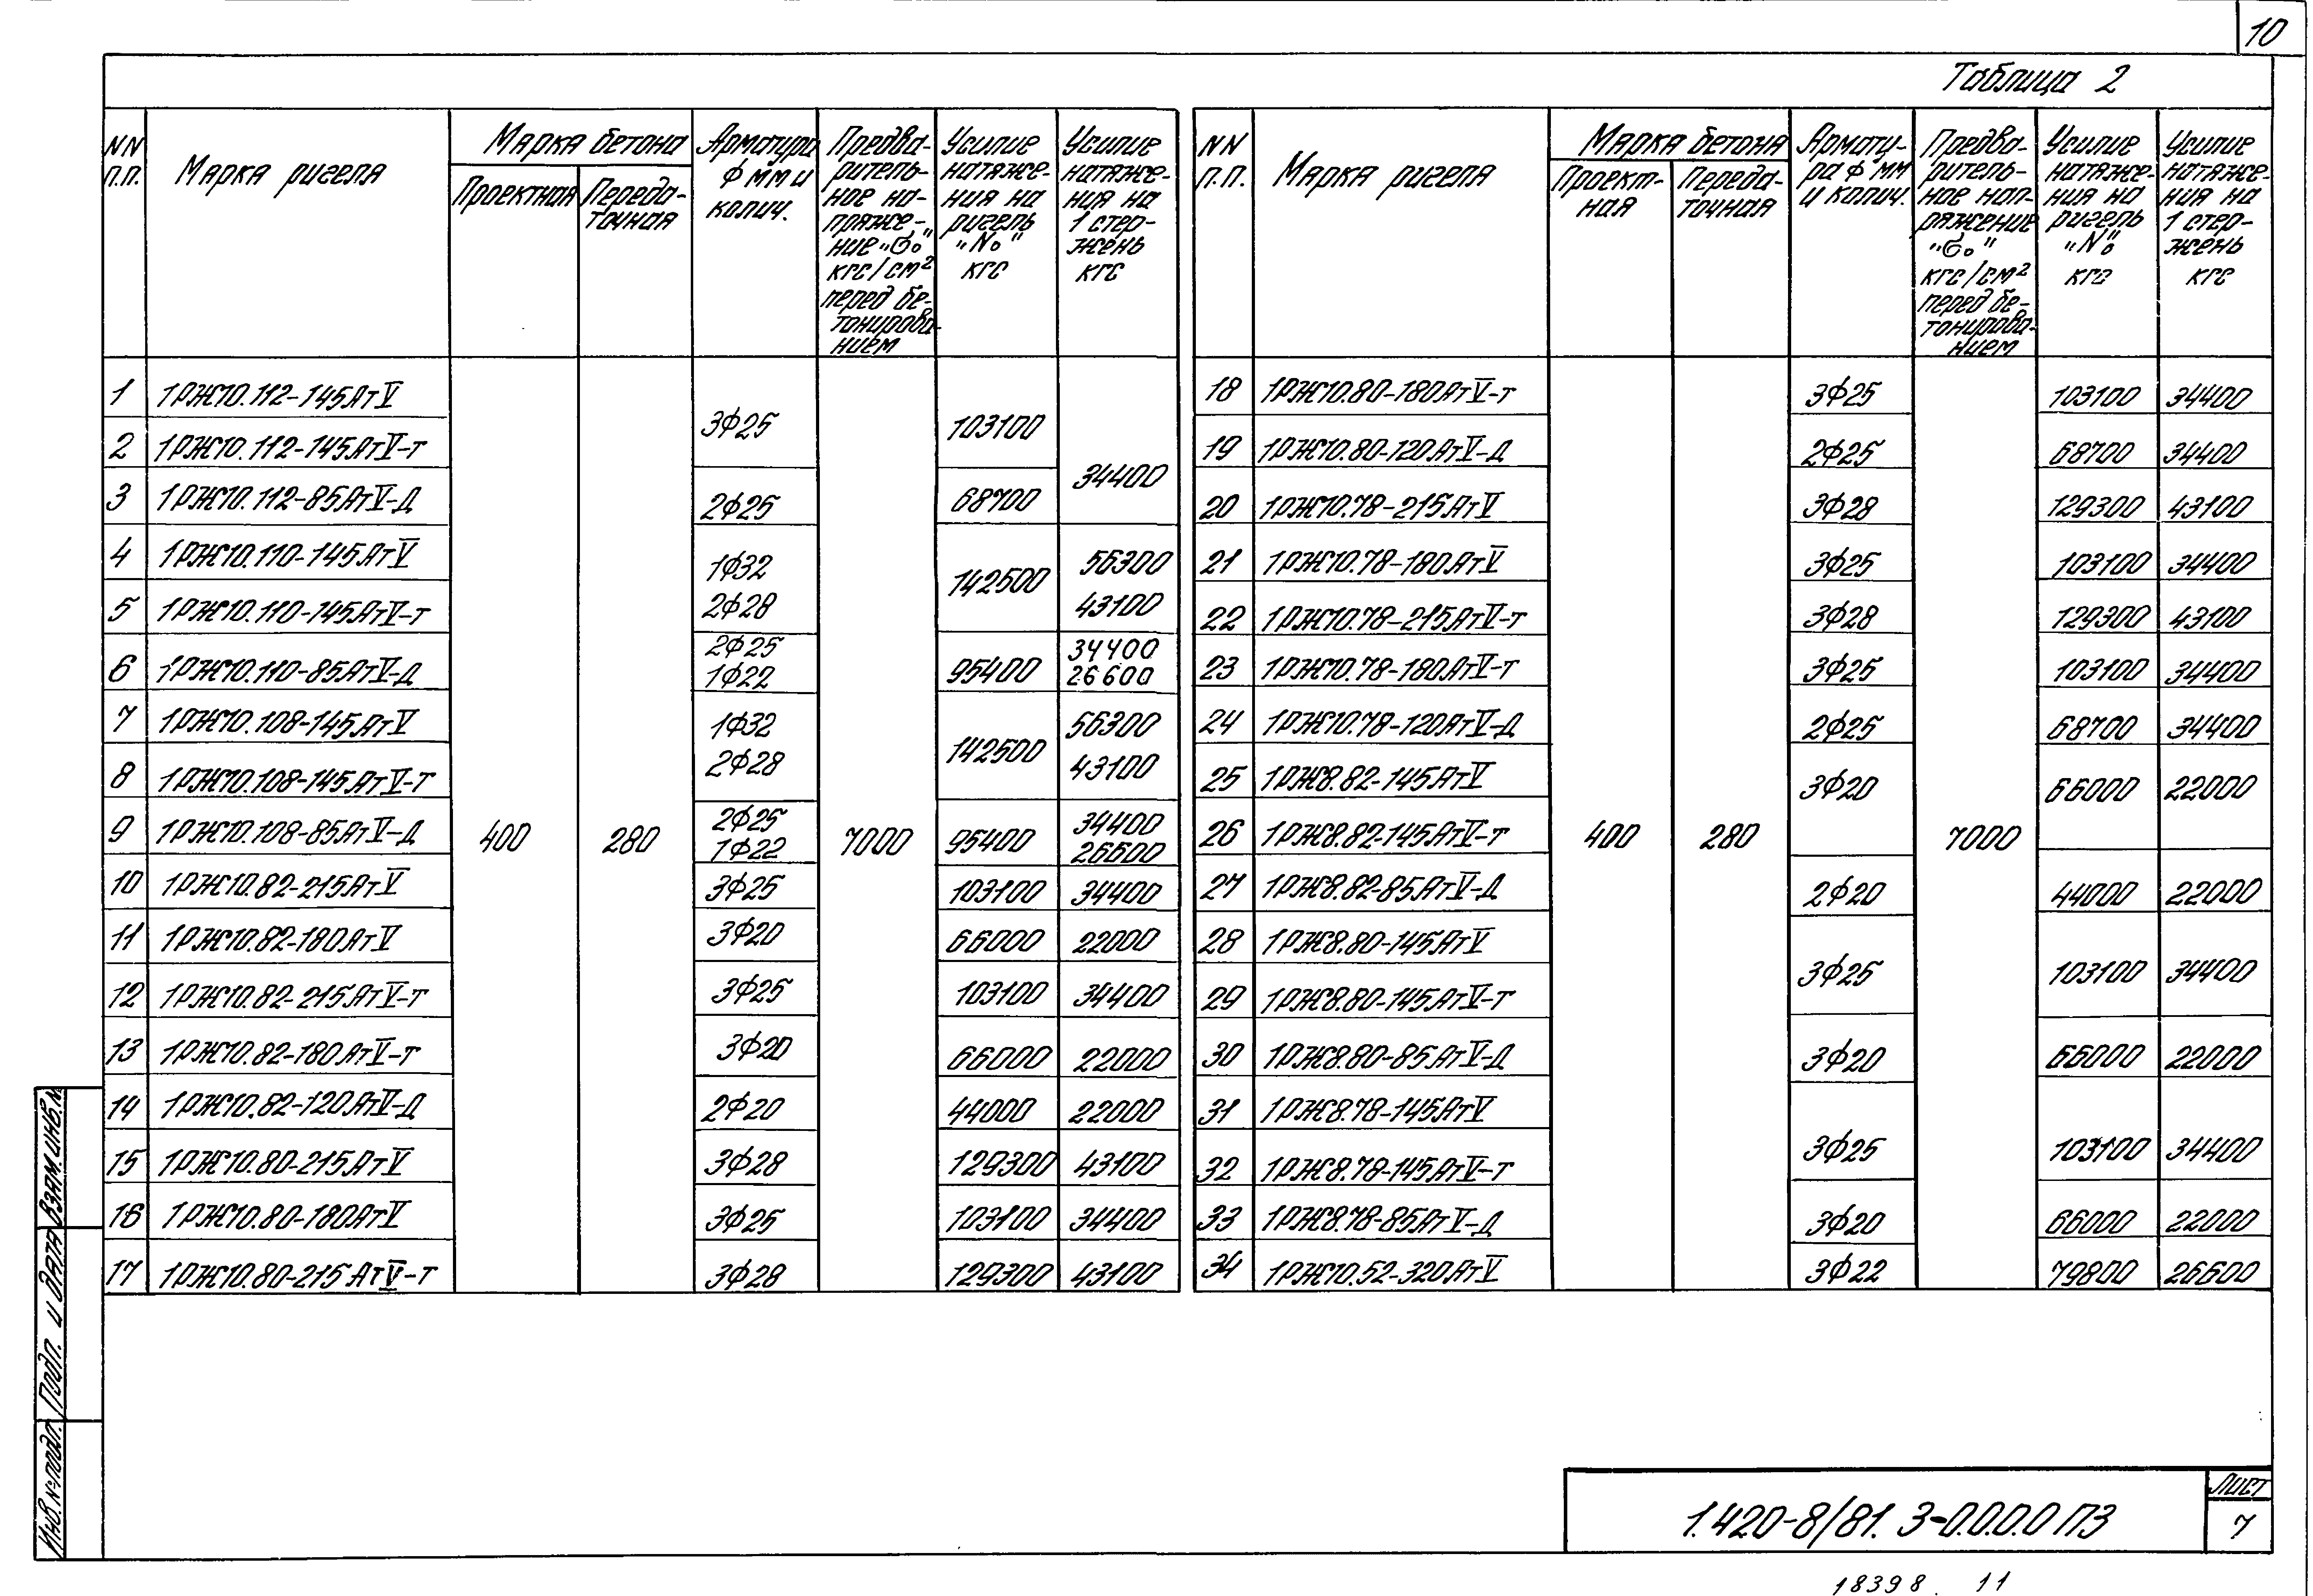 10
Таблица 2
NN п.п. Марка ригеля Марка бетона Проектная Передаточная Арматура ф мм и колич. Предварительное напряжение "σ₀" кгс/см² перед бетонированием Усилие натяжения на ригель "N₀" кгс Усилие натяжения на 1 стержень кгс
1 1РЖ10.112-145АтV 3ф25 103100 34400
2 1РЖ10.112-145АтV-т
3 1РЖ10.112-85АтV-Д 2ф25 68700
4 1РЖ10.110-145АтV 1ф32 142500 56300
5 1РЖ10.110-145АтV-т 2ф28 43100
6 1РЖ10.110-85АтV-Д 2ф25 1ф22 95400 34400 26600
7 1РЖ10.108-145АтV 1ф32 142500 56300
8 1РЖ10.108-145АтV-т 2ф28 43100
9 1РЖ10.108-85АтV-Д 400 280 2ф25 1ф22 7000 95400 34400 26600
10 1РЖ10.82-215АтV 3ф25 103100 34400
11 1РЖ10.82-180АтV 3ф20 66000 22000
12 1РЖ10.82-215АтV-т 3ф25 103100 34400
13 1РЖ10.82-180АтV-т 3ф20 66000 22000
14 1РЖ10.82-120АтV-Д 2ф20 44000 22000
15 1РЖ10.80-215АтV 3ф28 129300 43100
16 1РЖ10.80-180АтV 3ф25 103100 34400
17 1РЖ10.80-215АтV-т 3ф28 129300 43100
NN п.п. Марка ригеля Марка бетона Проектная Передаточная Арматура ф мм и колич. Предварительное напряжение "σ₀" кгс/см² перед бетонированием Усилие натяжения на ригель "N₀" кгс Усилие натяжения на 1 стержень кгс
18 1РЖ10.80-180АтV-т 3ф25 103100 34400
19 1РЖ10.80-120АтV-Д 2ф25 68700 34400
20 1РЖ10.78-215АтV 3ф28 129300 43100
21 1РЖ10.78-180АтV 3ф25 103100 34400
22 1РЖ10.78-215АтV-т 3ф28 129300 43100
23 1РЖ10.78-180АтV-т 3ф25 103100 34400
24 1РЖ10.78-120АтV-Д 2ф25 68700 34400
25 1РЖ8.82-145АтV 3ф20 66000 22000
26 1РЖ8.82-145АтV-т 400 280 7000
27 1РЖ8.82-85АтV-Д 2ф20 44000 22000
28 1РЖ8.80-145АтV 3ф25 103100 34400
29 1РЖ8.80-145АтV-т
30 1РЖ8.80-85АтV-Д 3ф20 66000 22000
31 1РЖ8.78-145АтV 3ф25 103100 34400
32 1РЖ8.78-145АтV-т
33 1РЖ8.78-85АтV-Д 3ф20 66000 22000
34 1РЖ10.52-320АтV 3ф22 79800 26600
Инв.№подл. Подп. и дата Взам.инв.№
1.420-8/81. 3-0.0.0.0 ПЗ
Лист
7
18398 11